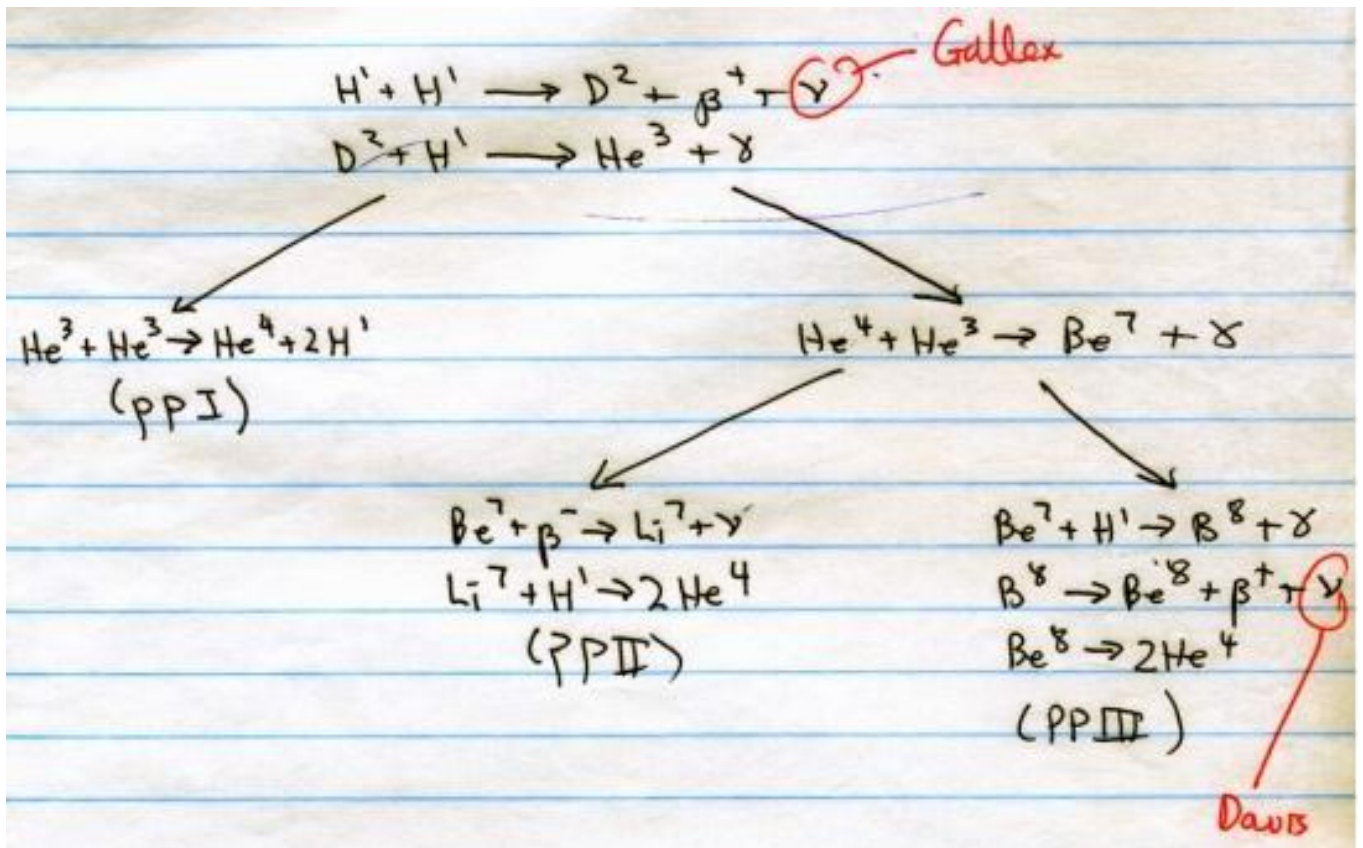 Gallex
H¹ + H¹ → D² + β⁺ + ν
D² + H¹ → He³ + γ
He³ + He³ → He⁴ + 2H¹
(PPI)
He⁴ + He³ → Be⁷ + γ
Be⁷ + β⁻ → Li⁷ + ν
Li⁷ + H¹ → 2He⁴
(PPII)
Be⁷ + H¹ → B⁸ + γ
B⁸ → Be⁸ + β⁺ + ν
Be⁸ → 2He⁴
(PPIII)
Davis